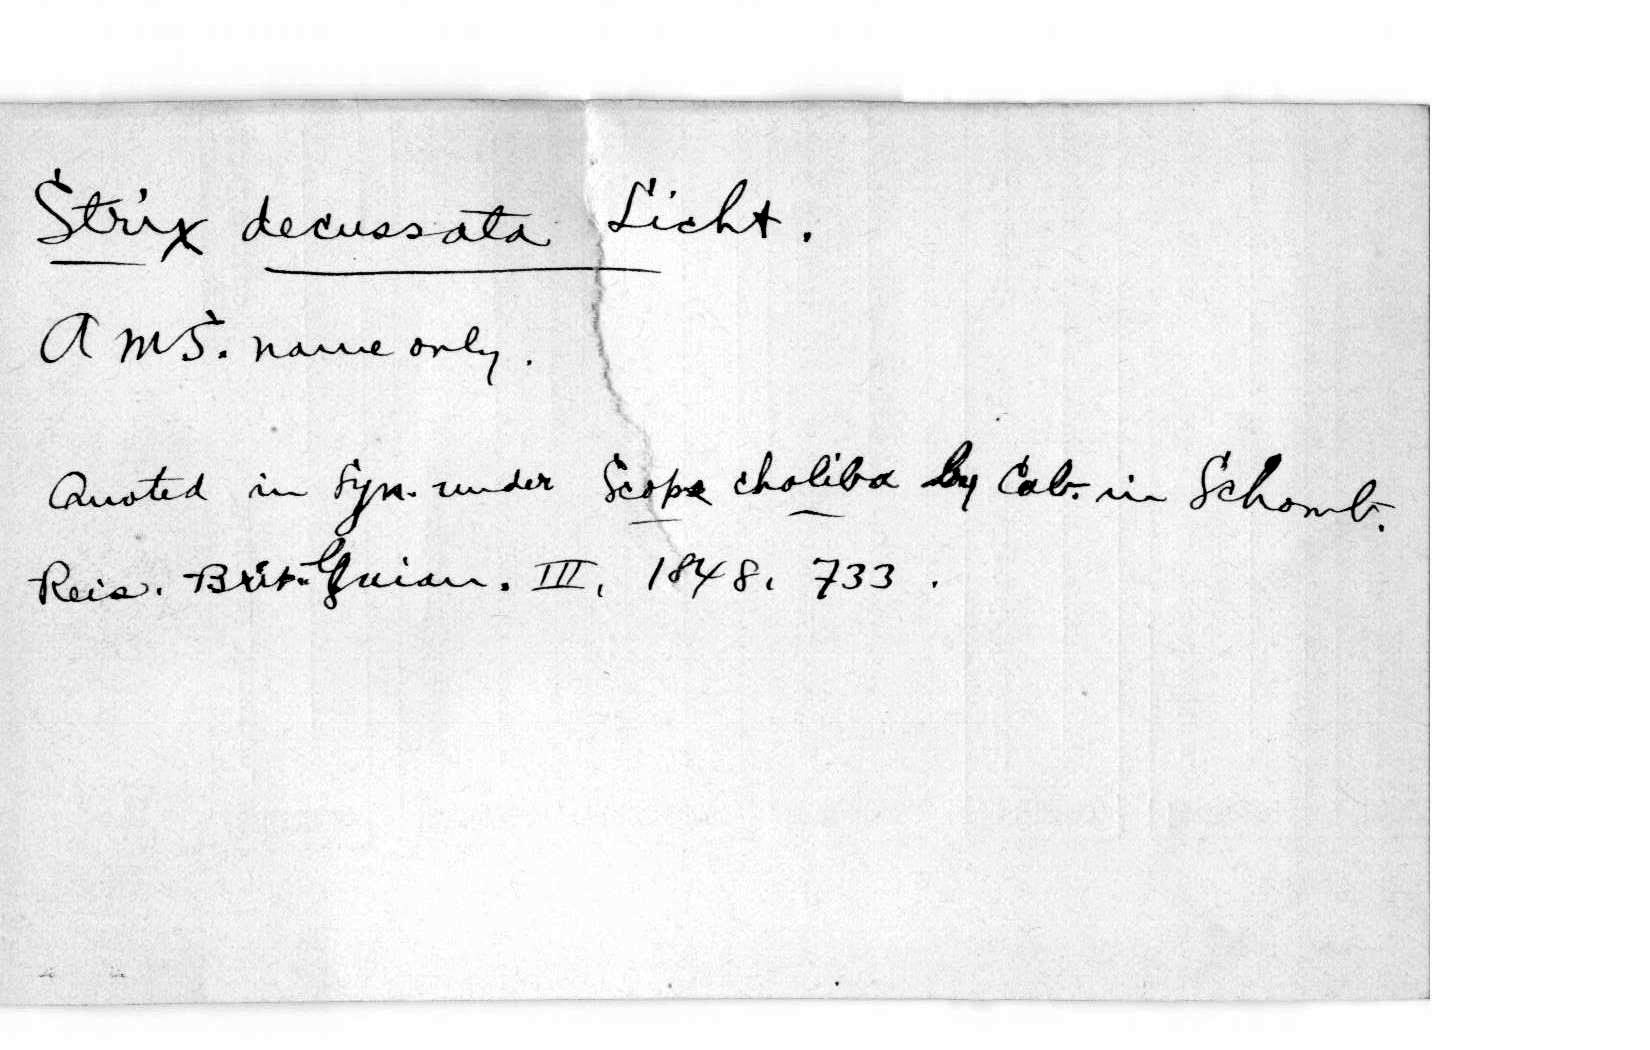 Strix decussata Licht.
A MS. name only.
Quoted in Syn. under Scops choliba by Cab. in Schomb.
Reis. Brit. Guian. III, 1848, 733.